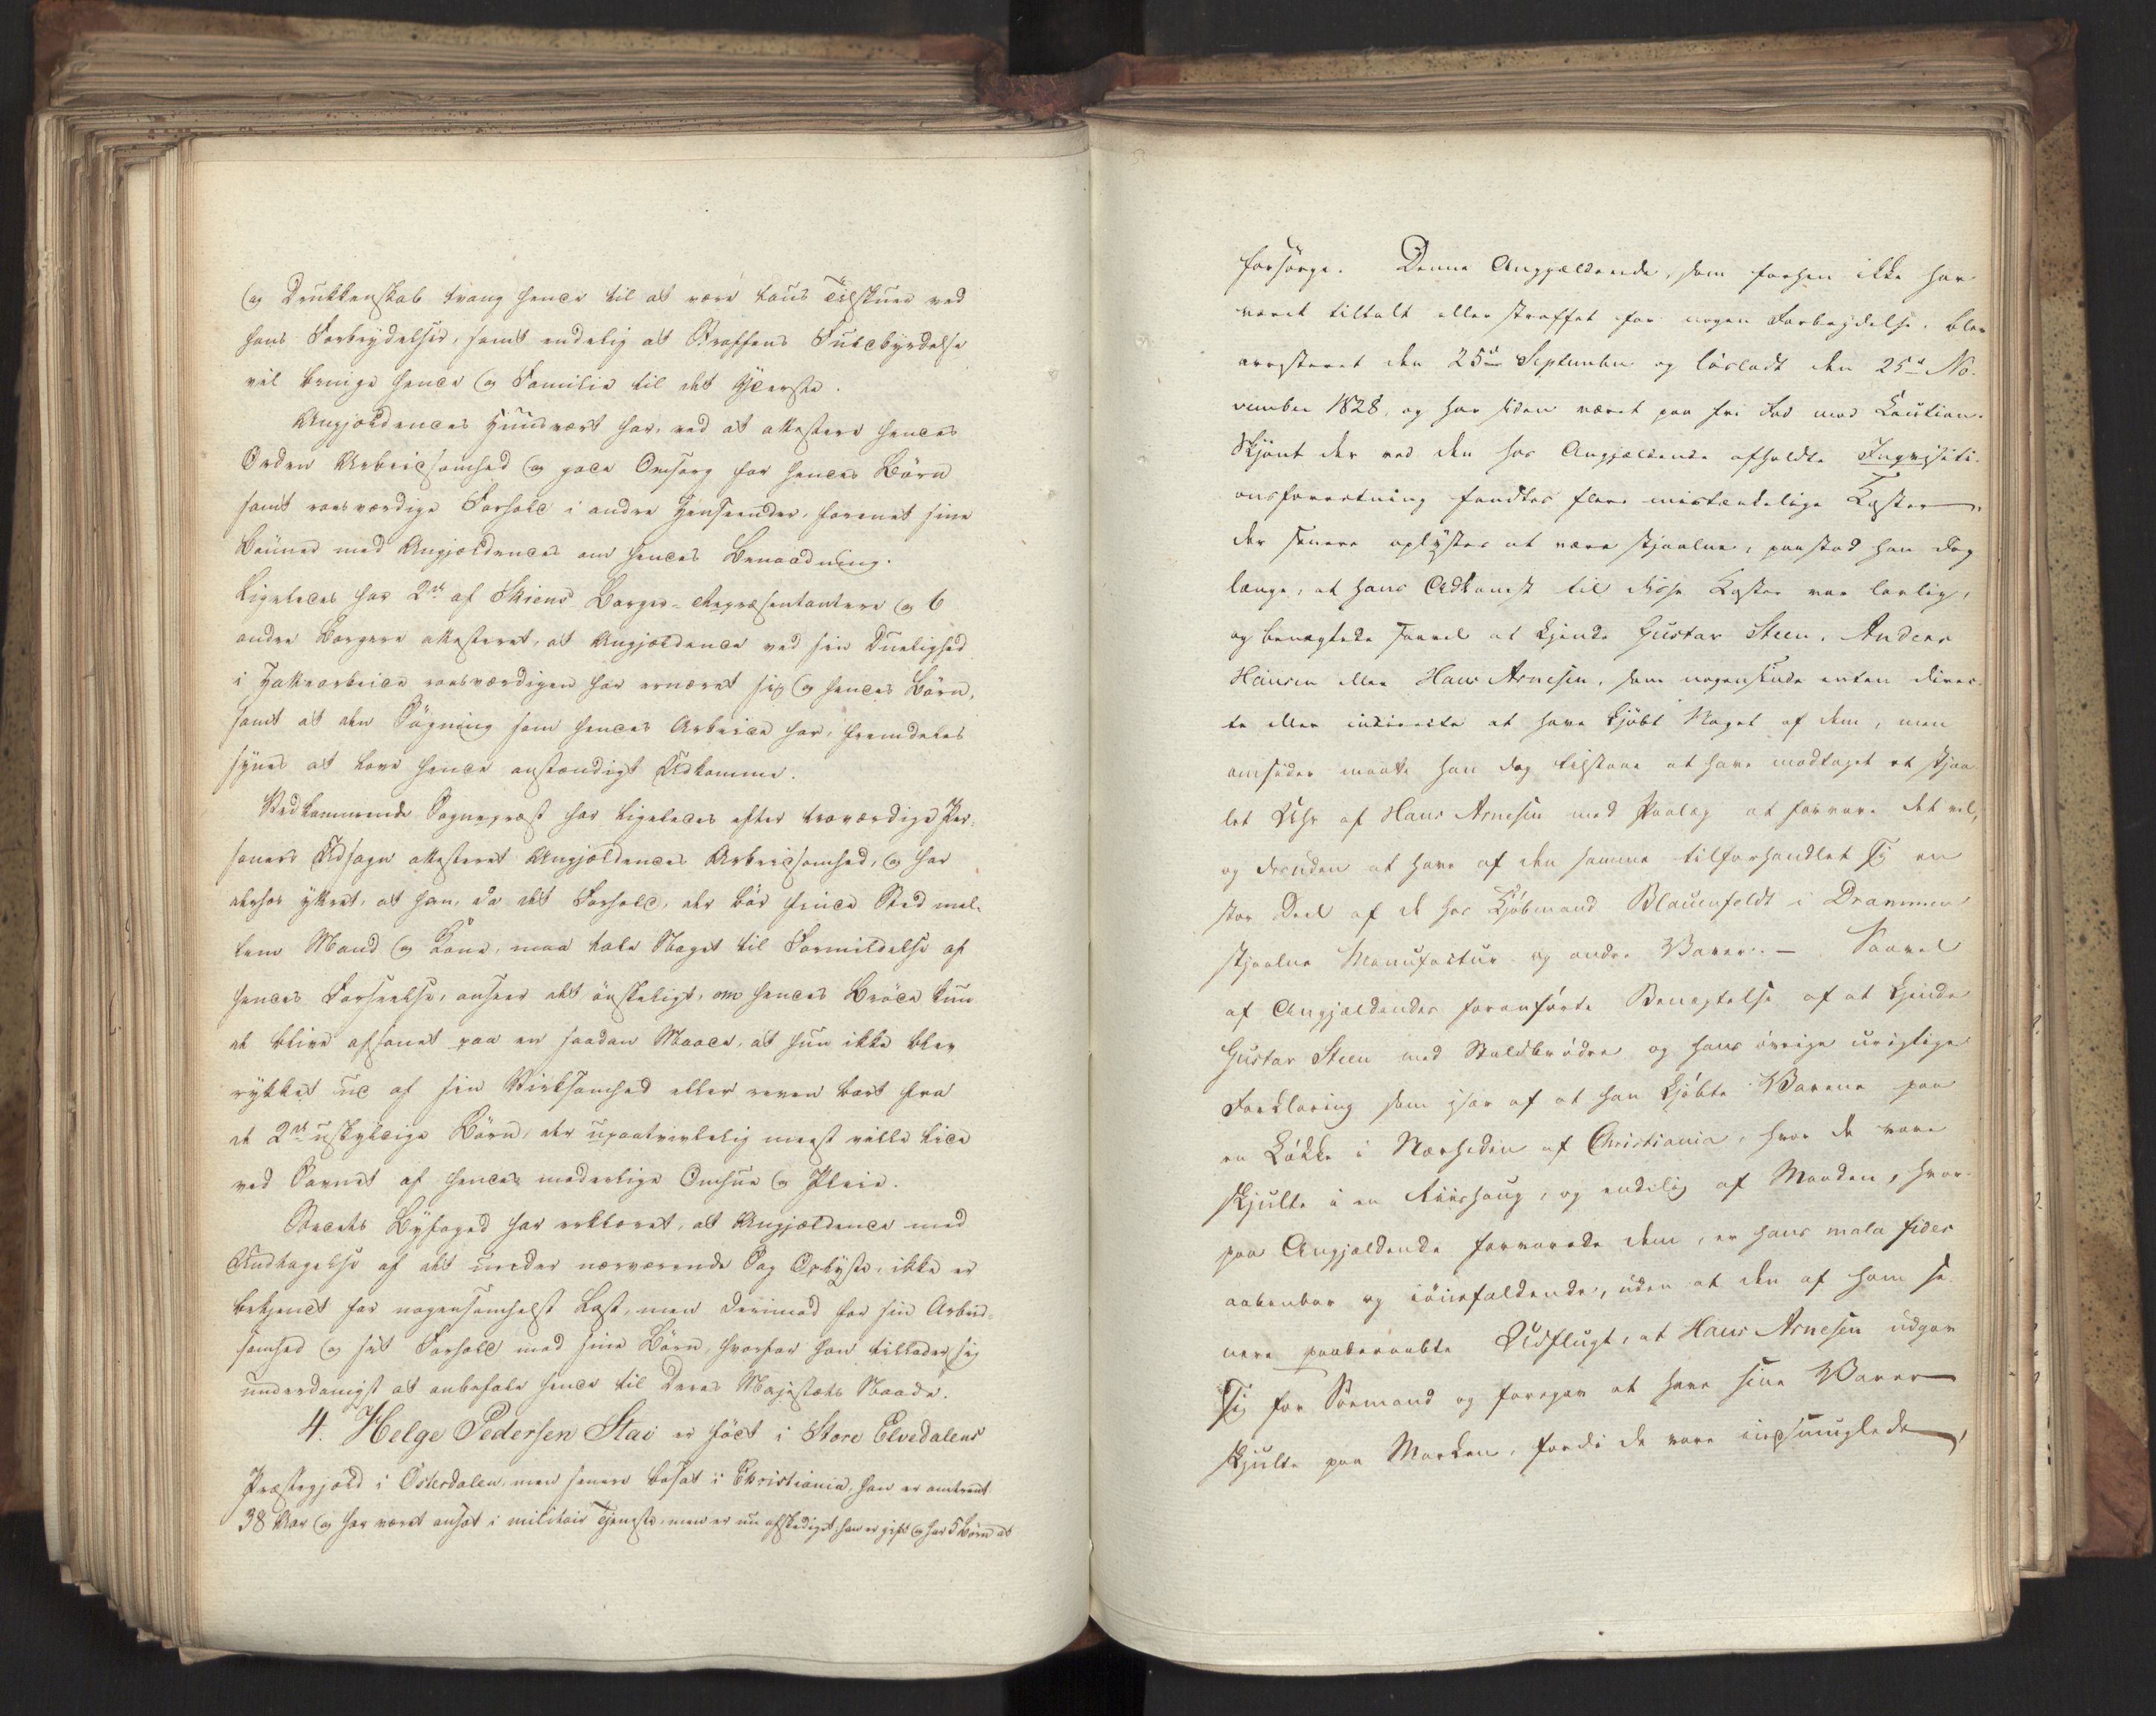 og Drukkenskab tvang hende til at være taus Tilskuer ved
hans Forbrydelser, samt endelig at Straffens Fuldbyrdelse
vil bringe hende og Familie til det Yderste.
Angjældendes Huusvert har, ved at attestere hendes
Orden Arbeidsomhed og gode Omsorg for hendes Börn
samt roesværdige Forhold i andre Henseender, forenet sine
Bönner med Angjældendes om hendes Benaadning.
Ligeledes har 2de af Skiens Borger-Repræsentantere og 6
andre Borgere attesteret, at Angjældende ved sin Duelighed
i Haandarbeide roesværdigen har ernæret sig og hendes Börn,
samt at den Sögning som hendes Arbeide har, fremdeles
synes at love hende anstændigt Udkomme.
Vedkommende Sognepræst har ligeledes efter troværdige Per-
soners Udsagn attesteret Angjældendes Arbeidsomhed, og har
derhos yttret, at han, da det Forhold, der bör finde Sted mel-
lem Mand og Kone, maa tale Noget til Formildelse af
hendes Forseelse, anseer det önskeligt, om hendes Bröde kun-
de blive afsonet paa en saadan Maade, at hun ikke blev
rykket ud af sin Virksomhed eller reven bort fra
de 2de uskyldige Börn, der upaatvivlelig meest ville lide
ved Savnet af hendes moderlige Omhue og Pleie.
Stedets Byfoged har erklæret, at Angjældende med
Undtagelse af det under nærværende Sag Oplyste, ikke er
bekjendt for nogensomhelst Last, men derimod for sin Arbeid-
somhed og sit Forhold mod sine Börn, hvorfor han tillader sig
underdanigst at anbefale hende til Deres Majestæts Naade.
4. Helge Pedersen Stai er föd i Store Elvedalens
Præstegjæld i Österdalen, men senere bosat i Christiania, han er omtrent
38 Aar og har været ansat i militair Tjeneste, men er nu afskediget; han er gift og har 5 Börn at
forsörge. Denne Angjældende, som forhen ikke har
været tiltalt eller straffet for nogen Forbrydelse, blev
arresteret den 25de September og lösladt den 25de No-
vember 1828, og har siden været paa fri Fod mod Caution.
Skjönt der ved den hos Angjældende afholdte Inqvisiti-
onsforretning fandtes flere mistænkelige Koster,
der senere oplystes at være stjaalne, paastod han dog
længe, at hans Adkomst til disse Koster var lovlig,
og benægtede saavel at kjende Gustav Steen, Anders
Hansen eller Hans Arnesen, som nogensinde enten direc-
te eller indirecte at have kjöbt Noget af dem, men
omsider maatte han dog tilstaae at have modtaget et stjaa-
let Uhr af Hans Arnesen med Paalæg at forvare det vel,
og desuden at have af den samme tilforhandlet sig en
stor Deel af de hos Kjöbmand Blauenfeldt i Drammen
stjaalne Manufactur og andre Varer. – Saavel
af Angjældendes foranförte Benægtelse af at kjende
Gustav Steen med Staldbrödre og hans övrige urigtige
Forklaring som især af at han kjöbte Varerne paa
en Lökke i Nærheden af Christiania, hvor de vare
skjulte i en Riishaug, og endelig af Maaden, hvor-
paa Angjældende forvarede dem, er hans mala fides
aabenbar og iöinefaldende, uden at den af ham se-
nere paaberaabte Udflugt, at Hans Arnesen udgav
sig for Sömand og foregav at have sine Varer
skjulte paa Marken, fordi de vare indsmuglede,